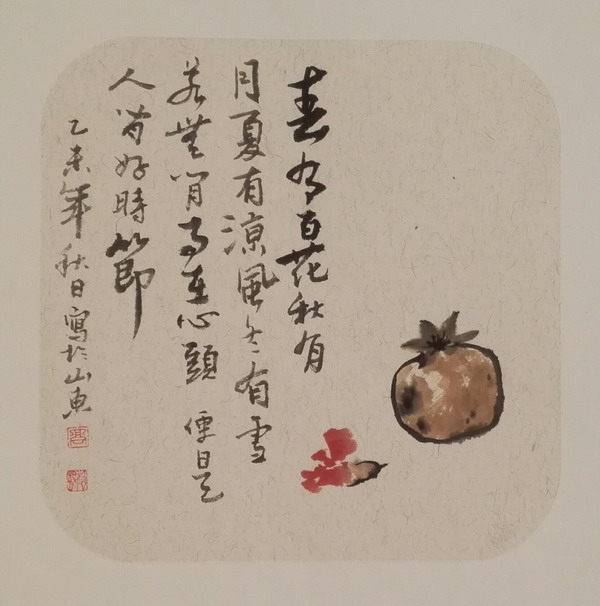 春有百花秋有
月夏有涼風冬有雪
若無閒事在心頭便是
人間好時節
乙未年秋日寫於山東